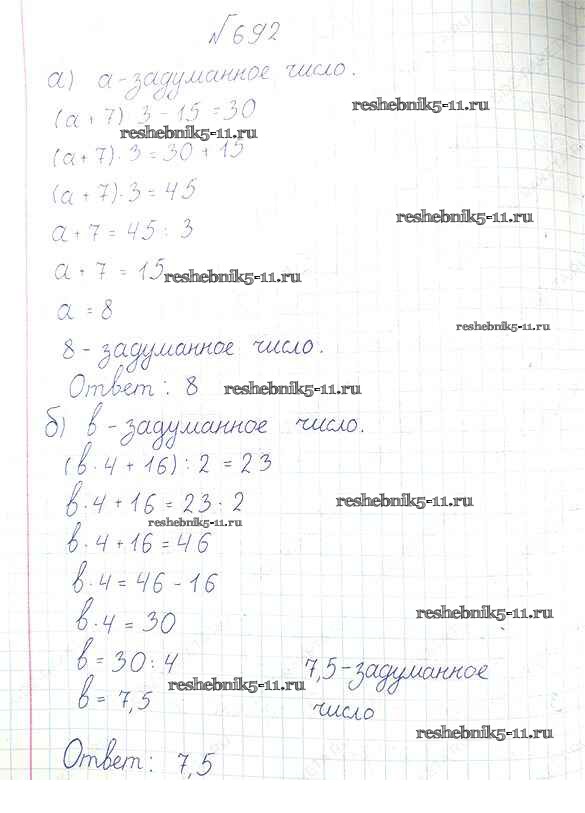 №692
а) а - задуманное число.
(а + 7) 3 - 15 = 30
reshebnik5-11.ru
reshebnik5-11.ru
(а + 7) · 3 = 30 + 15
(а + 7) · 3 = 45
reshebnik5-11.ru
а + 7 = 45 : 3
а + 7 = 15
reshebnik5-11.ru
а = 8
reshebnik5-11.ru
8 - задуманное число.
Ответ: 8
reshebnik5-11.ru
б) в - задуманное число.
(в · 4 + 16) : 2 = 23
в · 4 + 16 = 23 · 2
reshebnik5-11.ru
reshebnik5-11.ru
в · 4 + 16 = 46
в · 4 = 46 - 16
в · 4 = 30
reshebnik5-11.ru
в = 30 : 4
7,5 - задуманное
число
reshebnik5-11.ru
в = 7,5
reshebnik5-11.ru
Ответ: 7,5